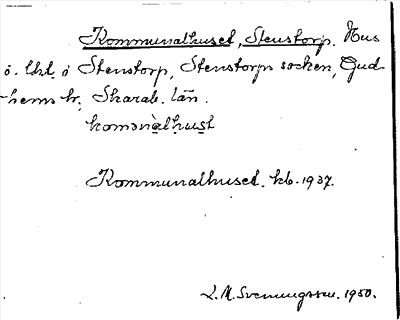 Kommunalhuset, Stenstorp. Hus
o. lht. i Stenstorp, Stenstorps socken, Gud-
hems hr, Skarab. län.
komɔnàlhust
Kommunalhuset. kb. 1937.
L. M. Svenungsson. 1950.